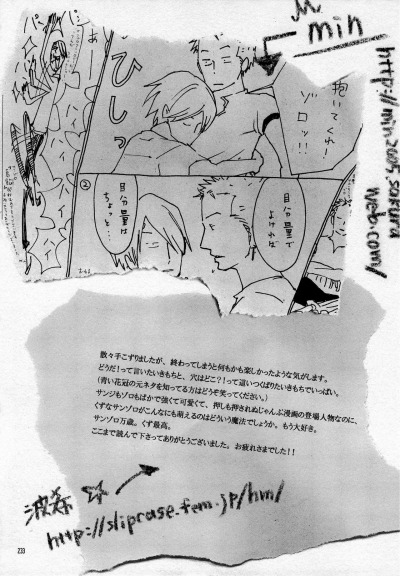 min
http://min2005.sakura
web.com/
抱いてくれ!
ゾロッ!!
ひしっ
②
自分量で
よければ
自分量は
ちょっと…
数々手こずりましたが、終わってしまうと何もかも楽しかったような気がします。
どうだ!って言いたいきもちと、穴はどこ?!って這いつくばりたいきもちでいっぱい。
(青い花冠の元ネタを知ってる方はどうぞ笑ってください。)
サンジもゾロもばかで強くて可愛くて、押しも押されぬじゃんぷ漫画の登場人物なのに、
くずなサンゾロがこんなにも萌えるのはどういう魔法でしょうか。もう大好き。
サンゾロ万歳。くず最高。
ここまで読んで下さってありがとうございました。お疲れさまでした!!
http://sliprase.fem.jp/hm/
233